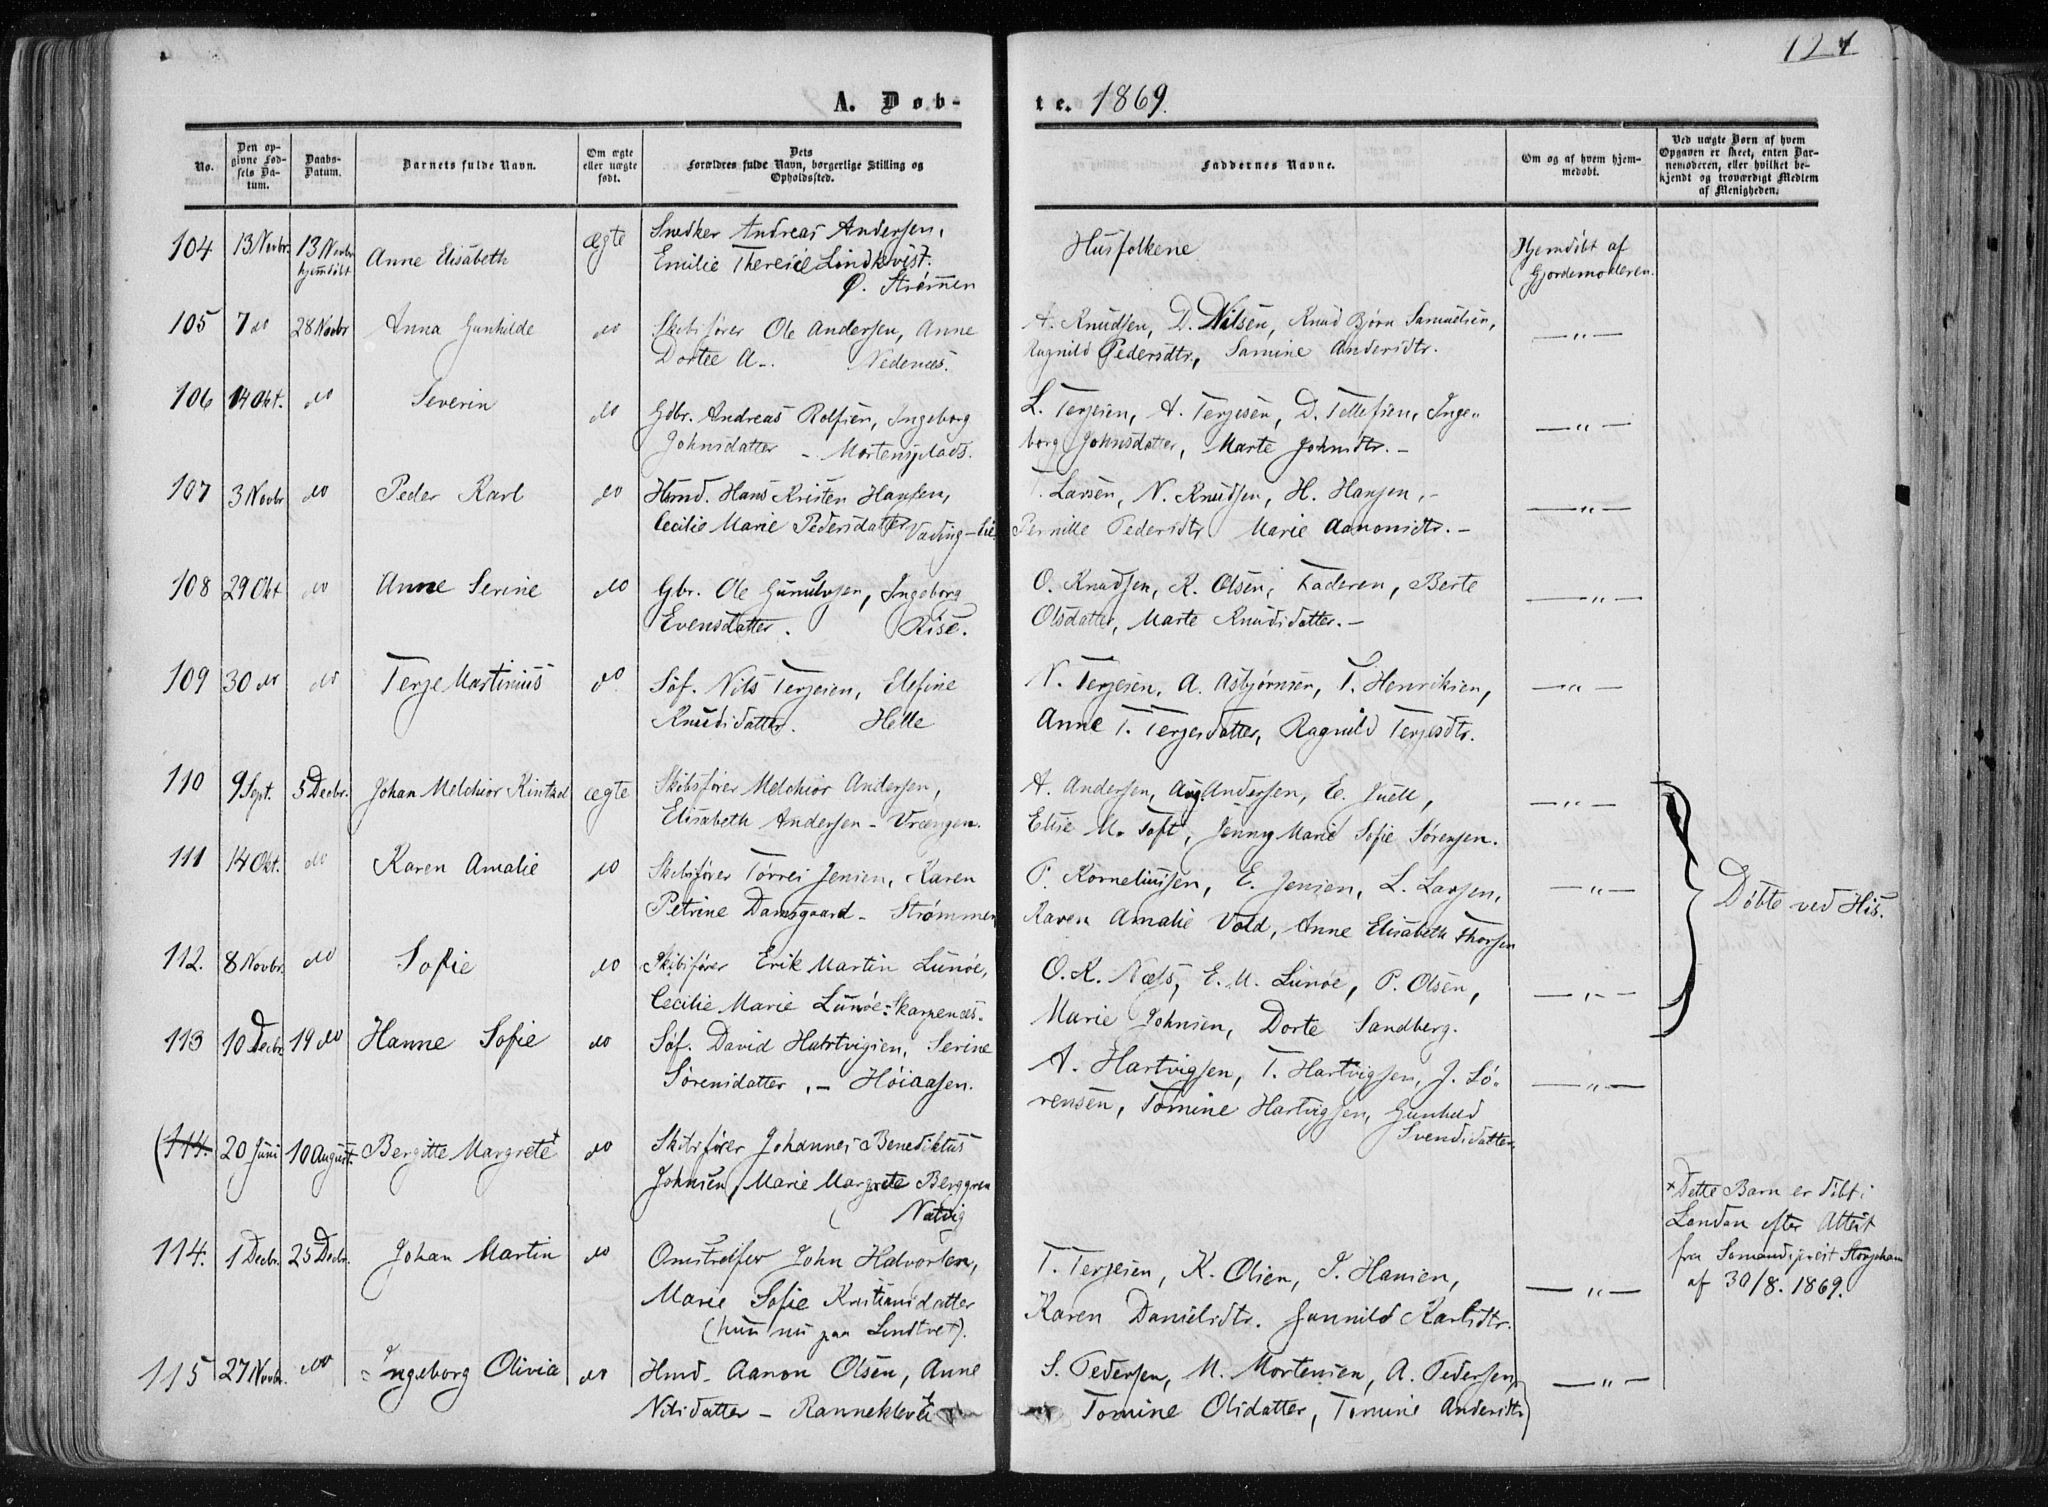 124
A. Døb-
te. 1869.
No.
Den op-
givne Fød-
sels Da-
tum.
Daabs-
Datum.
Barnets fulde Navn.
Om ægte
eller uægte
født.
Dets
Forældres fulde Navn, borgerlige Stilling og
Opholdssted.
Faddernes Navne.
Om og af hvem hjem-
medøbt.
Ved uægte Børn af hvem
Opgaven er skeet, enten Bar-
nemoderen, eller hvilket be-
kjendt og troværdigt Medlem
af Menigheden.
104 13 Novbr. 13 Novbr hjemdöbt Anne Elisabeth ægte Snedker Andreas Andersen,
Emilie Theresie Lindkvist.
Ø. Strömmen
Husfolkene
Hjemdöbt af
Gjordemoderen.
105 7 do 28 Novbr Anna Gunhilde do Skibsfører Ole Andersen, Anne
Dortee A-. Nedenæs.
A. Knudsen, D. Nilsen, Knud Bjørn Samuelsen,
Ragnild Pedersdtr., Samine Andersdtr. — " —
106 14 Okt. do Severin do Gdbr. Andreas Rolfsen, Ingeborg
Johnsdatter - Mortensplads.
L. Terjesen, A. Terjesen, D. Tellefsen, Inge-
borg Johnsdatter, Marte Johnsdtr. - — " —
107 3 Novbr do Peder Karl do Hsmd. Hans Kristen Hansen,
Cecilie Marie Pedersdatter Væding-
T. Larsen, N. Knudsen, H. Hansen, -
Pernille Pedersdtr Marie Aanonsdtr. - — " —
108 29 Okt do Anne Serine do Gbr. Ole Gunulvsen, Ingeborg
Evensdatter. Rise.
O. Knudsen, K. Olsen, Faderen, Berte
Olsdatter, Marte Knudsdatter. - — " —
109 30 do do Terje Martinius do. Söf. Nils Terjesen, Elefine
Knudsdatter. Helle
N. Terjesen, A. Asbjørnsen, T. Henriksen,
Anne T. Terjesdatter, Ragnild Terjesdtr. — " —
110 9 Sept. 5 Decbr. Johan Melchior Kintzel ægte Skibsfører Melchior Andersen,
Elisabeth Andersen - Vrængen.
A. Andersen, Aug. Andersen, E. Juell,
Elise M. Toft, Jenny Marie Sofie Sörensen. — " —
111 14 Okt. do Karen Amalie do Skibsfører Törres Jensen, Karen
Petrine Damsgaard - Strømmen
P. Korneliussen, E. Jensen, L. Larsen,
Karen Amalie Vold, Anne Elisabeth Thorsen — " —
Döbte ved His.
112. 8 Novbr. do Sofie do Skibsfører Erik Martin Lunöe,
Cecilie Marie Lunöe - Skarpenæs.
O. K. Næss, E. M. Lunöe, P. Olsen,
Marie Johnsen, Dorte Sandberg. — " —
113 10 Decbr 19 do Hanne Sofie do Söf. David Hartvigsen, Serine
Sörensdatter, - Höiaasen.
A. Hartvigsen, T. Hartvigsen, J. Sö-
rensen, Tomine Hartvigsen, Gunhild
Svendsdatter. — " —
(114. 20 Juni 10 August. Bergitte Margrete + do Skibsfører Johannes Benediktus
Johnsen, Marie Margrete Berggren
Natvig
+ Dette Barn er döbt i
London efter Attest
fra Sømandsprest Storjohan
af 30/8. 1869.
114. 1 Decbr. 25 Decbr. Johan Martin do Omstreifer John Halvorsen,
Marie Sofie Kristiansdatter
(hun nu paa Lindtvet).
T. Terjesen, K. Olsen, J. Hansen,
Karen Danielsdtr. Gunnild Karlsdtr. — " —
115 27 Novbr. do Ingeborg Olivia do Hsmd. Aanon Olsen, Anne
Nilsdatter - Ranneklev
S. Pedersen, M. Mortensen, A. Pedersen,
Tomine Olsdatter, Tomine Andersdtr — " —